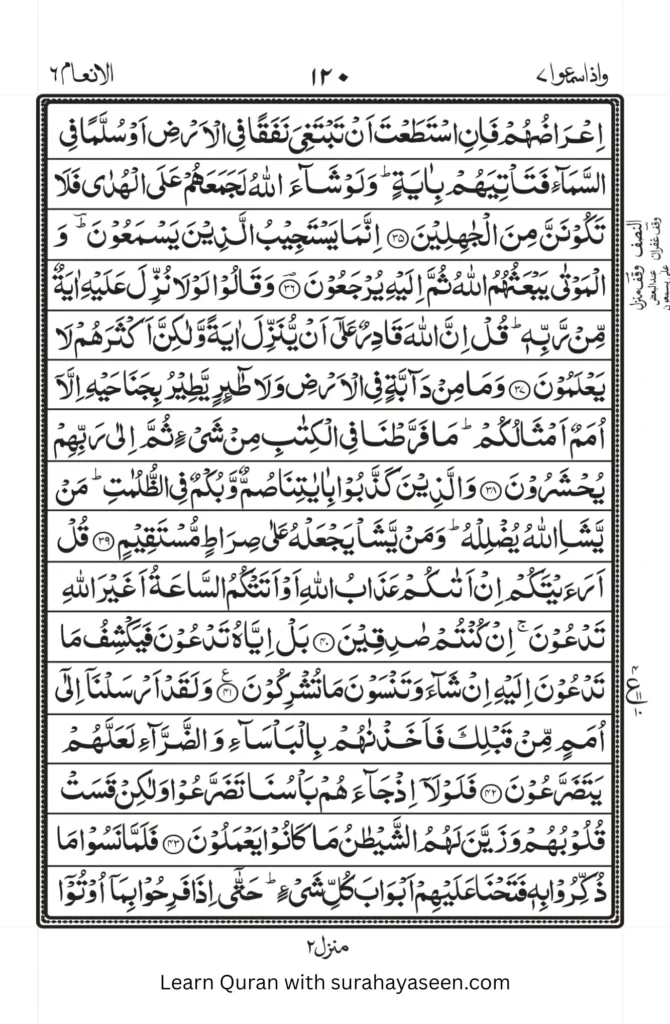 واذاسمعوا ٧
١٢٠
الانعام ٦
اِعْرَاضُهُمْ فَاِنِ اسْتَطَعْتَ اَنْ تَبْتَغِیَ نَفَقًا فِی الْاَرْضِ اَوْ سُلَّمًا فِی
السَّمَآءِ فَتَاْتِیَهُمْ بِاٰیَةٍ ؕ وَ لَوْ شَآءَ اللّٰهُ لَجَمَعَهُمْ عَلَی الْهُدٰی فَلَا
تَكُوْنَنَّ مِنَ الْجٰهِلِیْنَ ﴿۳۵﴾ اِنَّمَا یَسْتَجِیْبُ الَّذِیْنَ یَسْمَعُوْنَ ؕ وَ
الْمَوْتٰی یَبْعَثُهُمُ اللّٰهُ ثُمَّ اِلَیْهِ یُرْجَعُوْنَ ﴿۳۶﴾ وَ قَالُوْا لَوْ لَا نُزِّلَ عَلَیْهِ اٰیَةٌ
مِّنْ رَّبِّهٖ ؕ قُلْ اِنَّ اللّٰهَ قَادِرٌ عَلٰۤی اَنْ یُّنَزِّلَ اٰیَةً وَّ لٰكِنَّ اَكْثَرَهُمْ لَا
یَعْلَمُوْنَ ﴿۳۷﴾ وَ مَا مِنْ دَآبَّةٍ فِی الْاَرْضِ وَ لَا طٰٓئِرٍ یَّطِیْرُ بِجَنَاحَیْهِ اِلَّاۤ
اُمَمٌ اَمْثَالُكُمْ ؕ مَا فَرَّطْنَا فِی الْكِتٰبِ مِنْ شَیْءٍ ثُمَّ اِلٰی رَبِّهِمْ
یُحْشَرُوْنَ ﴿۳۸﴾ وَ الَّذِیْنَ كَذَّبُوْا بِاٰیٰتِنَا صُمٌّ وَّ بُكْمٌ فِی الظُّلُمٰتِ ؕ مَنْ
یَّشَاِ اللّٰهُ یُضْلِلْهُ ؕ وَ مَنْ یَّشَاْ یَجْعَلْهُ عَلٰی صِرَاطٍ مُّسْتَقِیْمٍ ﴿۳۹﴾ قُلْ
اَرَءَیْتَكُمْ اِنْ اَتٰىكُمْ عَذَابُ اللّٰهِ اَوْ اَتَتْكُمُ السَّاعَةُ اَغَیْرَ اللّٰهِ
تَدْعُوْنَ ۚ اِنْ كُنْتُمْ صٰدِقِیْنَ ﴿۴۰﴾ بَلْ اِیَّاهُ تَدْعُوْنَ فَیَكْشِفُ مَا
تَدْعُوْنَ اِلَیْهِ اِنْ شَآءَ وَ تَنْسَوْنَ مَا تُشْرِكُوْنَ ﴿۴۱﴾ وَ لَقَدْ اَرْسَلْنَاۤ اِلٰۤی
اُمَمٍ مِّنْ قَبْلِكَ فَاَخَذْنٰهُمْ بِالْبَاْسَآءِ وَ الضَّرَّآءِ لَعَلَّهُمْ
یَتَضَرَّعُوْنَ ﴿۴۲﴾ فَلَوْ لَاۤ اِذْ جَآءَهُمْ بَاْسُنَا تَضَرَّعُوْا وَ لٰكِنْ قَسَتْ
قُلُوْبُهُمْ وَ زَیَّنَ لَهُمُ الشَّیْطٰنُ مَا كَانُوْا یَعْمَلُوْنَ ﴿۴۳﴾ فَلَمَّا نَسُوْا مَا
ذُكِّرُوْا بِهٖ فَتَحْنَا عَلَیْهِمْ اَبْوَابَ كُلِّ شَیْءٍ ؕ حَتّٰۤی اِذَا فَرِحُوْا بِمَاۤ اُوْتُوْۤا
النصف
وقف غفران
وقف منزل
منزل ٢
Learn Quran with surahayaseen.com